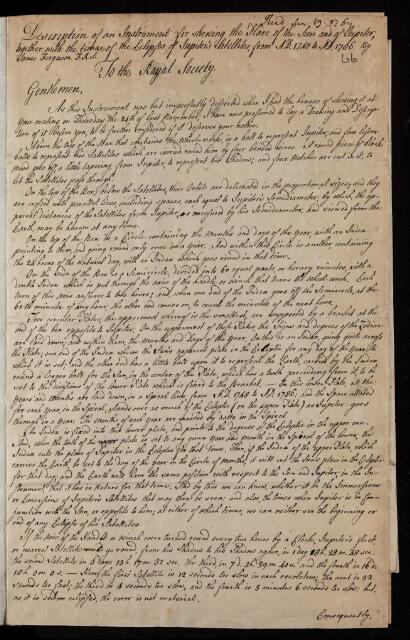 Read Jan. 13. 176
66
Description of an Instrument for shewing the Place of the Sun and of Jupiter,
together with the times of the Eclipses of Jupiter's Satellites, from A.D. 1748 to A.D. 1786. By
James Ferguson F.R.S.
To the Royal Society.
Gentlemen,
As this Instrument was but imperfectly described when I had the honour of shewing it at
your meeting on Thursday the 24th of last November, I have now presumed to lay a Drawing and Descrip-
tion of it before you, to be further considered if it deserves your notice.
Above the top of the Box that contains the Wheel-work, is a ball to represent Jupiter, and four lesser
balls to represent his Satellites which are carried round him by four slender Wires. A round piece of black
wood goes off, a little tapering from Jupiter, to represent his Shadow; and four Notches are cut in it, to
let the Satellites pass through.
On the top of the Box, below the Satellites, their Orbits are delineated in the proportional sizes; and they
are crossed with parallel lines, including spaces, each equal to Jupiter's Semidiameter; by which, the ap-
parent distances of the Satellites from Jupiter, as measured by this Semidiameter, and viewed from the
Earth, may be known at any time.
On the top of the Box is a Circle containing the Months and days of the year, with an Index
pointing to them, and going round only once in a year. And within this Circle is another, containing
the 24 hours of the Natural day, with an Index which goes round in that time.
On the Side of the Box is a Semicircle, divided into 60 equal parts, or horary minutes, with a
double Index which is put through the axis of the handle or winch that turns the whole work. Each
turn of this axis answers to two hours; and when one end of the Index goes off the Semicircle, at the
60th minute of any hour, the other end comes on, to count the minutes of the next hour.
Two circular Plates, the uppermost whereof is the smallest, are supported by a bracket at the
end of the box opposite to Jupiter. On the uppermost of these Plates the Signs and degrees of the Zodiac
are laid down; and within them, the Months and days of the year. In this is an Index, going quite across
the Plate, one end of the Index shews the Sun's apparent place in the Ecliptic for any day of the year to
which it is set, and the other end has a little ball upon it to represent the Earth, carried by the Index
round a larger ball for the Sun, in the center of the Plate, which has a tooth proceeding from it, to be
set to the divisions of the lower Plate which is fixed to the Bracket. — On this lower Plate, all the
years and Months are laid down, in a Spiral line, from A.D. 1748 to A.D. 1786; and the Space allotted
for each year, in the Spiral, stands over as much of the Ecliptic (on the upper Plate) as Jupiter goes
through in a year. The Months of each year are denoted by dotts in the Spiral.
And, when the tooth of the upper plate is set to any given year and month in the Spiral of the lower, the
Index cuts the place of Jupiter in the Ecliptic for that time. Then, if the Index of the upper Plate, which
carries the Earth, be set to the day of the year in the Circle of Months, it will cut the Sun's place in the Ecliptic
for that day; and the Earth will have the same position with respect to the Sun and Jupiter, in the In-
strument, that it has in Nature for that time. And by this we can know, whether it be the Immersions
or Emersions of Jupiter's Satellites that may then be seen; and also the times when Jupiter is in Con-
junction with the Sun, or opposite to him; at either of which times, we can neither see the beginning or
end of any Eclipse of his Satellites.
If the axis of the handle or winch were turned round every two hours by a Clock, Jupiter's first
or nearest Satellite would go round, from his Shadow to his Shadow again, in 1 day 18h. 28m. 48 sec.
the second Satellite in 3 days 13h. 17m. 32 sec. the third in 7d. 3h. 59m. 40s. and the fourth in 16d.
18h. 0m. 0s. — From the first Satellite is 12 seconds too slow in each revolution; the next is 22
seconds too fast; the third is 4 seconds too slow, and the fourth is 5 minutes 6 seconds too slow: but,
as it is seldom eclipsed, the error is not material.
Consequently,